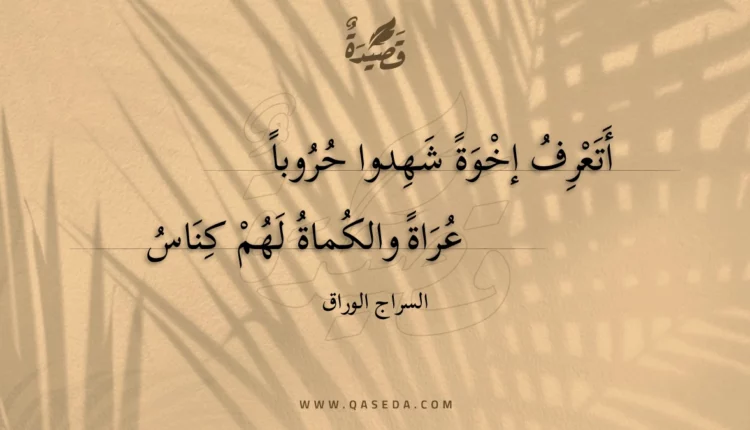 قَصِيْدَةٌ
أَتَعْرِفُ إخْوَةً شَهِدوا حُرُوباً
عُرَاةً والكُماةُ لَهُمْ كِنَاسُ
السراج الوراق
WWW.QASEDA.COM